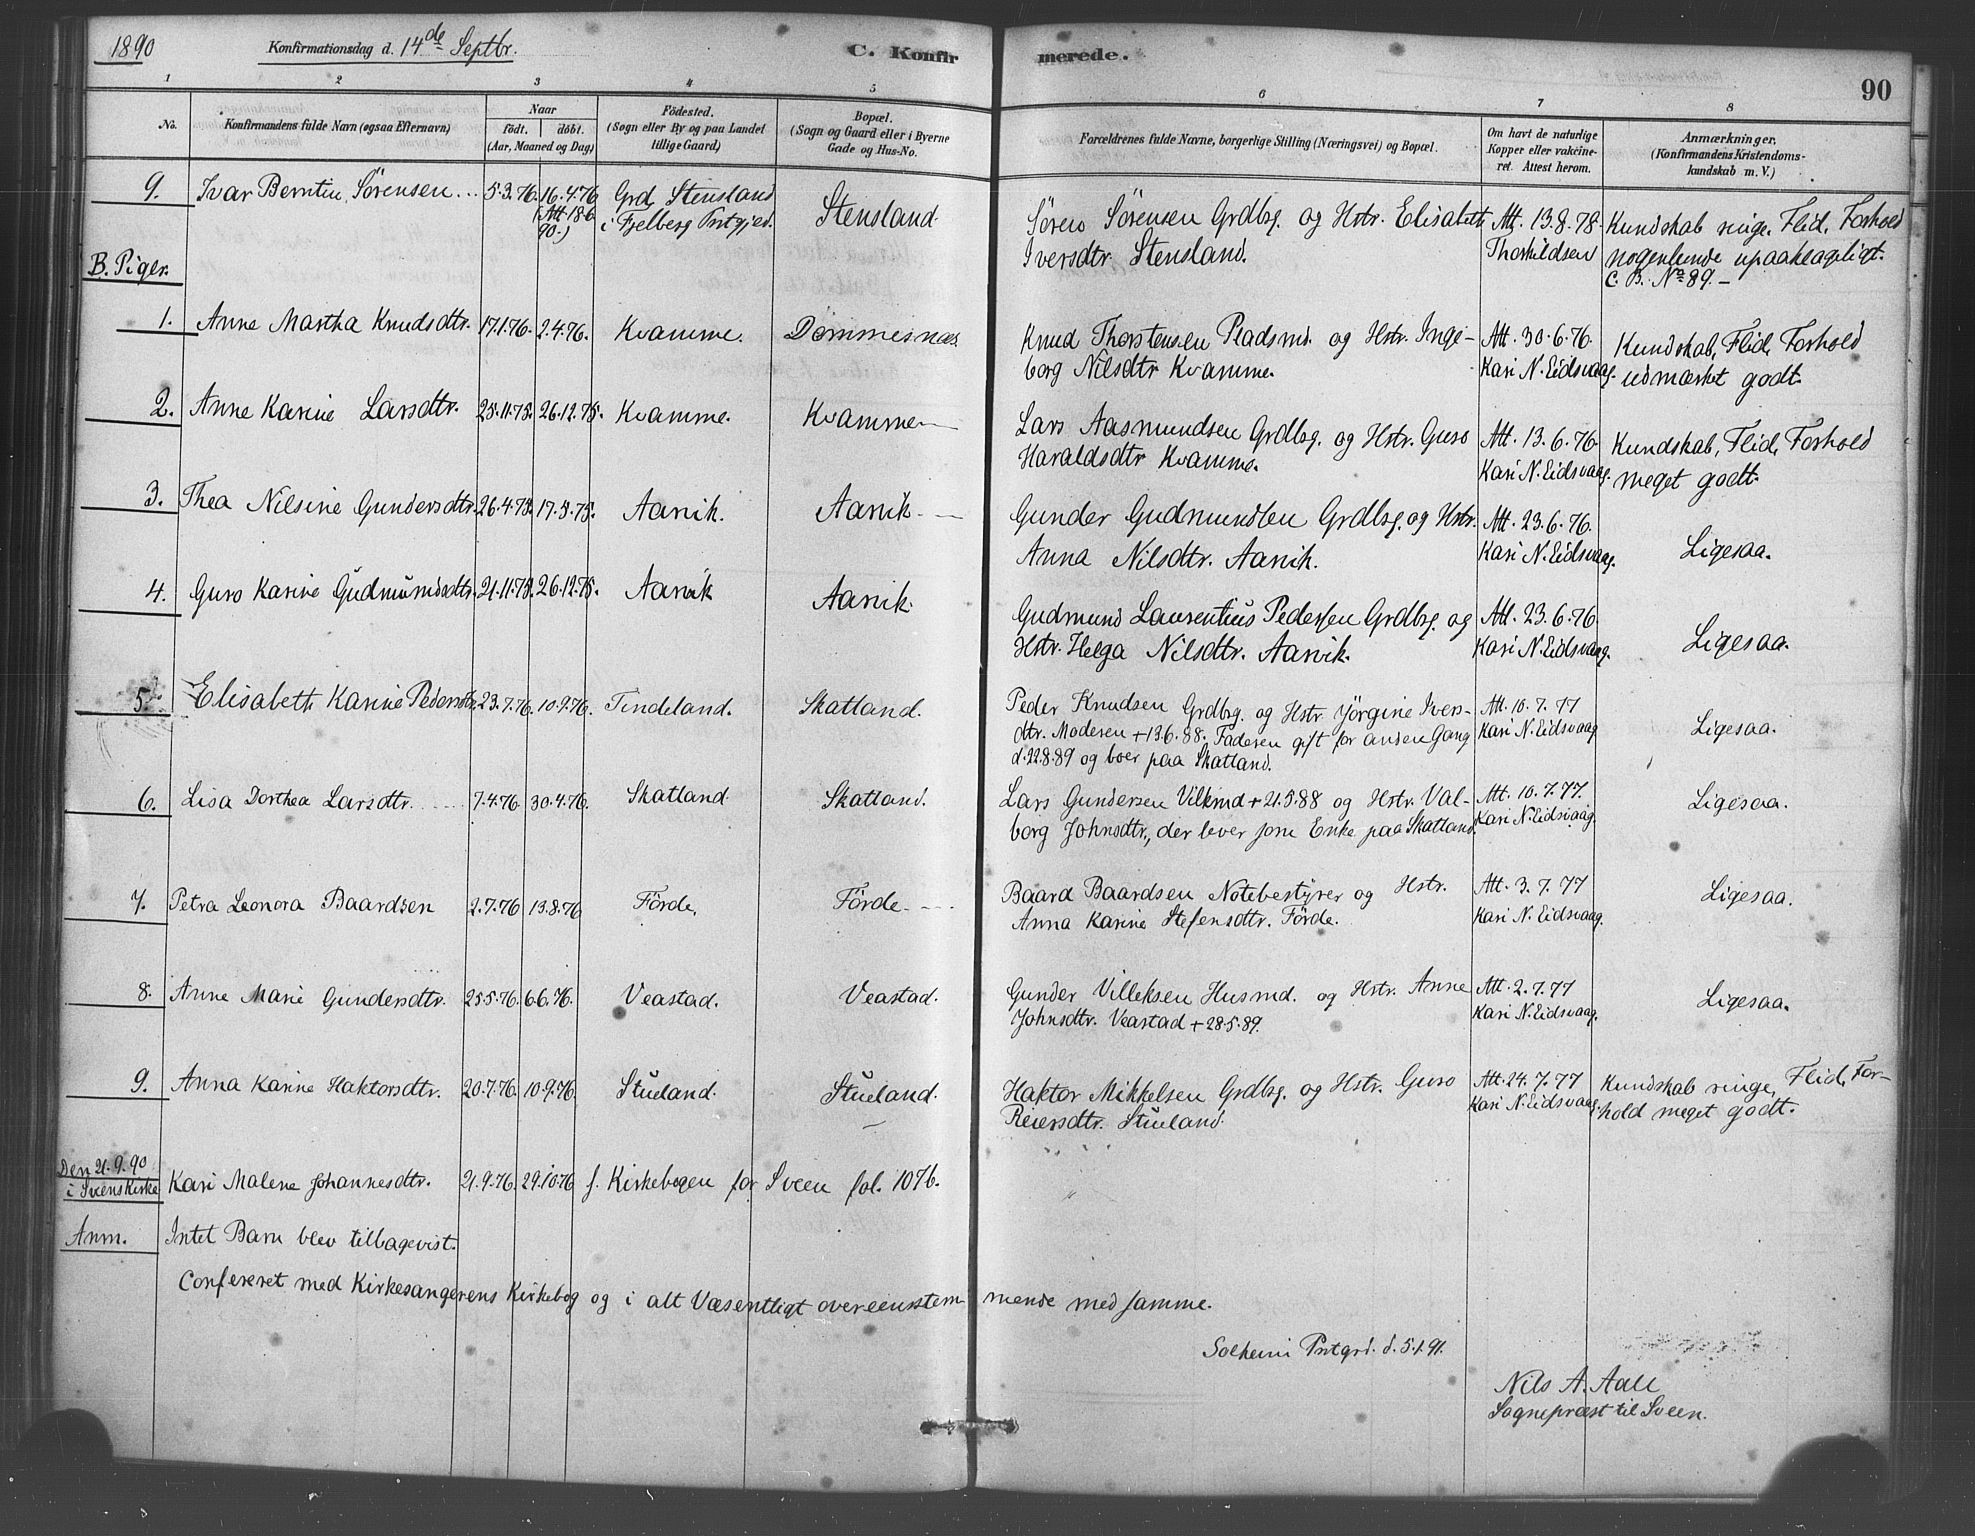 1890 Konfirmationsdag d. 14de Septbr. C. Konfirmerede. 90
1 2 3 4 5 6 7 8
No. Konfirmandens fulde Navn (ogsaa Efternavn) Naar født. døbt. (Aar, Maaned og Dag) Fødested. (Sogn eller By og paa Landet tillige Gaard) Bopæl. (Sogn og Gaard eller i Byerne Gade og Hus-No. Forældrenes fulde Navne, borgerlige Stilling (Næringsvei) og Bopæl. Om havt de naturlige Kopper eller vakcineret. Attest herom. Anmærkninger. (Konfirmandens Kristendomskundskab m. V.)
9. Ivar Berntin Sørensen 5.3.76. 16.4.76 (Att. 18.6.90.) Grd. Stensland i Fjelberg Prstgjed. Stensland Søren Sørensen Grdbrg. og Hstr. Elisabeth Iversdtr. Stensland. Att. 13.8.78. Thorkildsen Kundskab ringe. Flid, Forhold nogenlunde upaaklageligt. C. B. No 89.
B. Piger.
1. Anne Martha Knudsdtr. 17.1.76. 2.4.76. Kvamme. Dømmesnæs. Knud Thorstensen Pladsmd. og Hstr. Ingeborg Nilsdtr Kvamme. Att. 30.6.76. Kari N. Eidsvaag. Kundskab, Flid, Forhold udmærket godt.
2. Anne Karine Larsdtr. 25.11.75. 26.12.75. Kvamme. Kvamme Lars Aasmundsen Grdbrg. og Hstr. Guro Haraldsdtr Kvamme. Att. 13.6.76. Kari N. Eidsvaag. Kundskab, Flid, Forhold meget godt.
3. Thea Nilsine Gundersdtr. 26.4.75. 17.5.75. Aarvik. Aarvik. Gunder Gudmundsen Grdbrg. og Hstr. Anna Nilsdtr. Aarvik. Att. 23.6.76. Kari N. Eidsvaag. Ligesaa.
4. Guro Karine Gudmundsdtr. 21.11.75. 26.12.75. Aarvik Aarvik. Gudmund Laurentius Pedersen Grdbrg. og Hstr. Helga Nilsdtr. Aarvik. Att. 23.6.76. Kari N. Eidsvaag. Ligesaa.
5. Elisabeth Karine Pedersdtr. 23.7.76. 10.9.76. Tindeland. Skatland. Peder Knudsen Grdbrg. og Hstr Jørgine Iversdtr. Moderen +13.6.88. Faderen gift for anden Gang d. 22.8.89 og boer paa Skatland. Att. 10.7.77 Kari N. Eidsvaag. Ligesaa.
6. Lisa Dorthea Larsdtr. 7.4.76. 30.4.76. Skatland. Skatland. Lars Gundersen Vilkmd + 21.5.88 og Hstr. Valborg Johnsdtr., der lever som Enke paa Skatland. Att. 10.7.77. Kari N. Eidsvaag. Ligesaa.
7. Petra Leonora Baardsen 2.7.76 13.8.76 Førde. Førde. Baard Baardsen Notebestyrer og Hstr. Anna Karine Stefensdtr. Førde. Att. 3.7.77 Kari N. Eidsvaag. Ligesaa.
8. Anne Marie Gundersdtr. 25.5.76. 6.6.76. Veastad. Veastad. Gunder Villeksen Husmd. og Hstr. Anne Johnsdtr. Veastad +28.5.89. Att. 2.7.77 Kari N. Eidsvaag. Ligesaa.
9. Anna Karine Haktorsdtr. 20.7.76 10.9.76. Stueland. Stueland. Haktor Mikkelsen Grdbrg. og Hstr. Guro Reiersdtr. Stueland. Att. 24.7.77 Kari N. Eidsvaag. Kundskab ringe, Flid, Forhold meget godt.
Den 21.9.90 i Sveens Kirke Kari Malene Johannesdtr. 21.9.76. 29.10.76 f. Kirkebogen for Sveen fol. 107b.
Anm. Intet Barn blev tilbagevist.
Confereret med Kirkesangerens Kirkebog og i alt Væsentligt overeensstemmende med samme.
Solheim Prstgrd. d. 5.1.91.
Nils A. Aall
Sognepræst til Sveen.